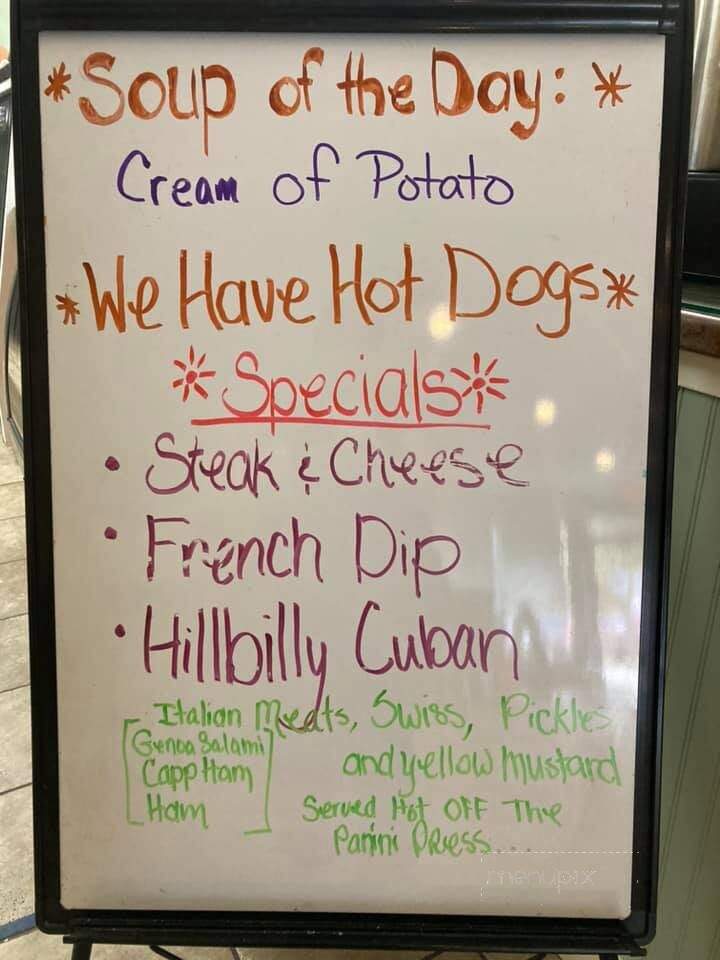 *Soup of the Day: *
Cream of Potato
*We Have Hot Dogs*
*Specials*
• Steak & Cheese
• French Dip
• Hillbilly Cuban
Italian Meats, Swiss, Pickles
[Genoa Salami]
Capp Ham
Ham
and yellow mustard
Served Hot OFF The
Panini Press...
menupix